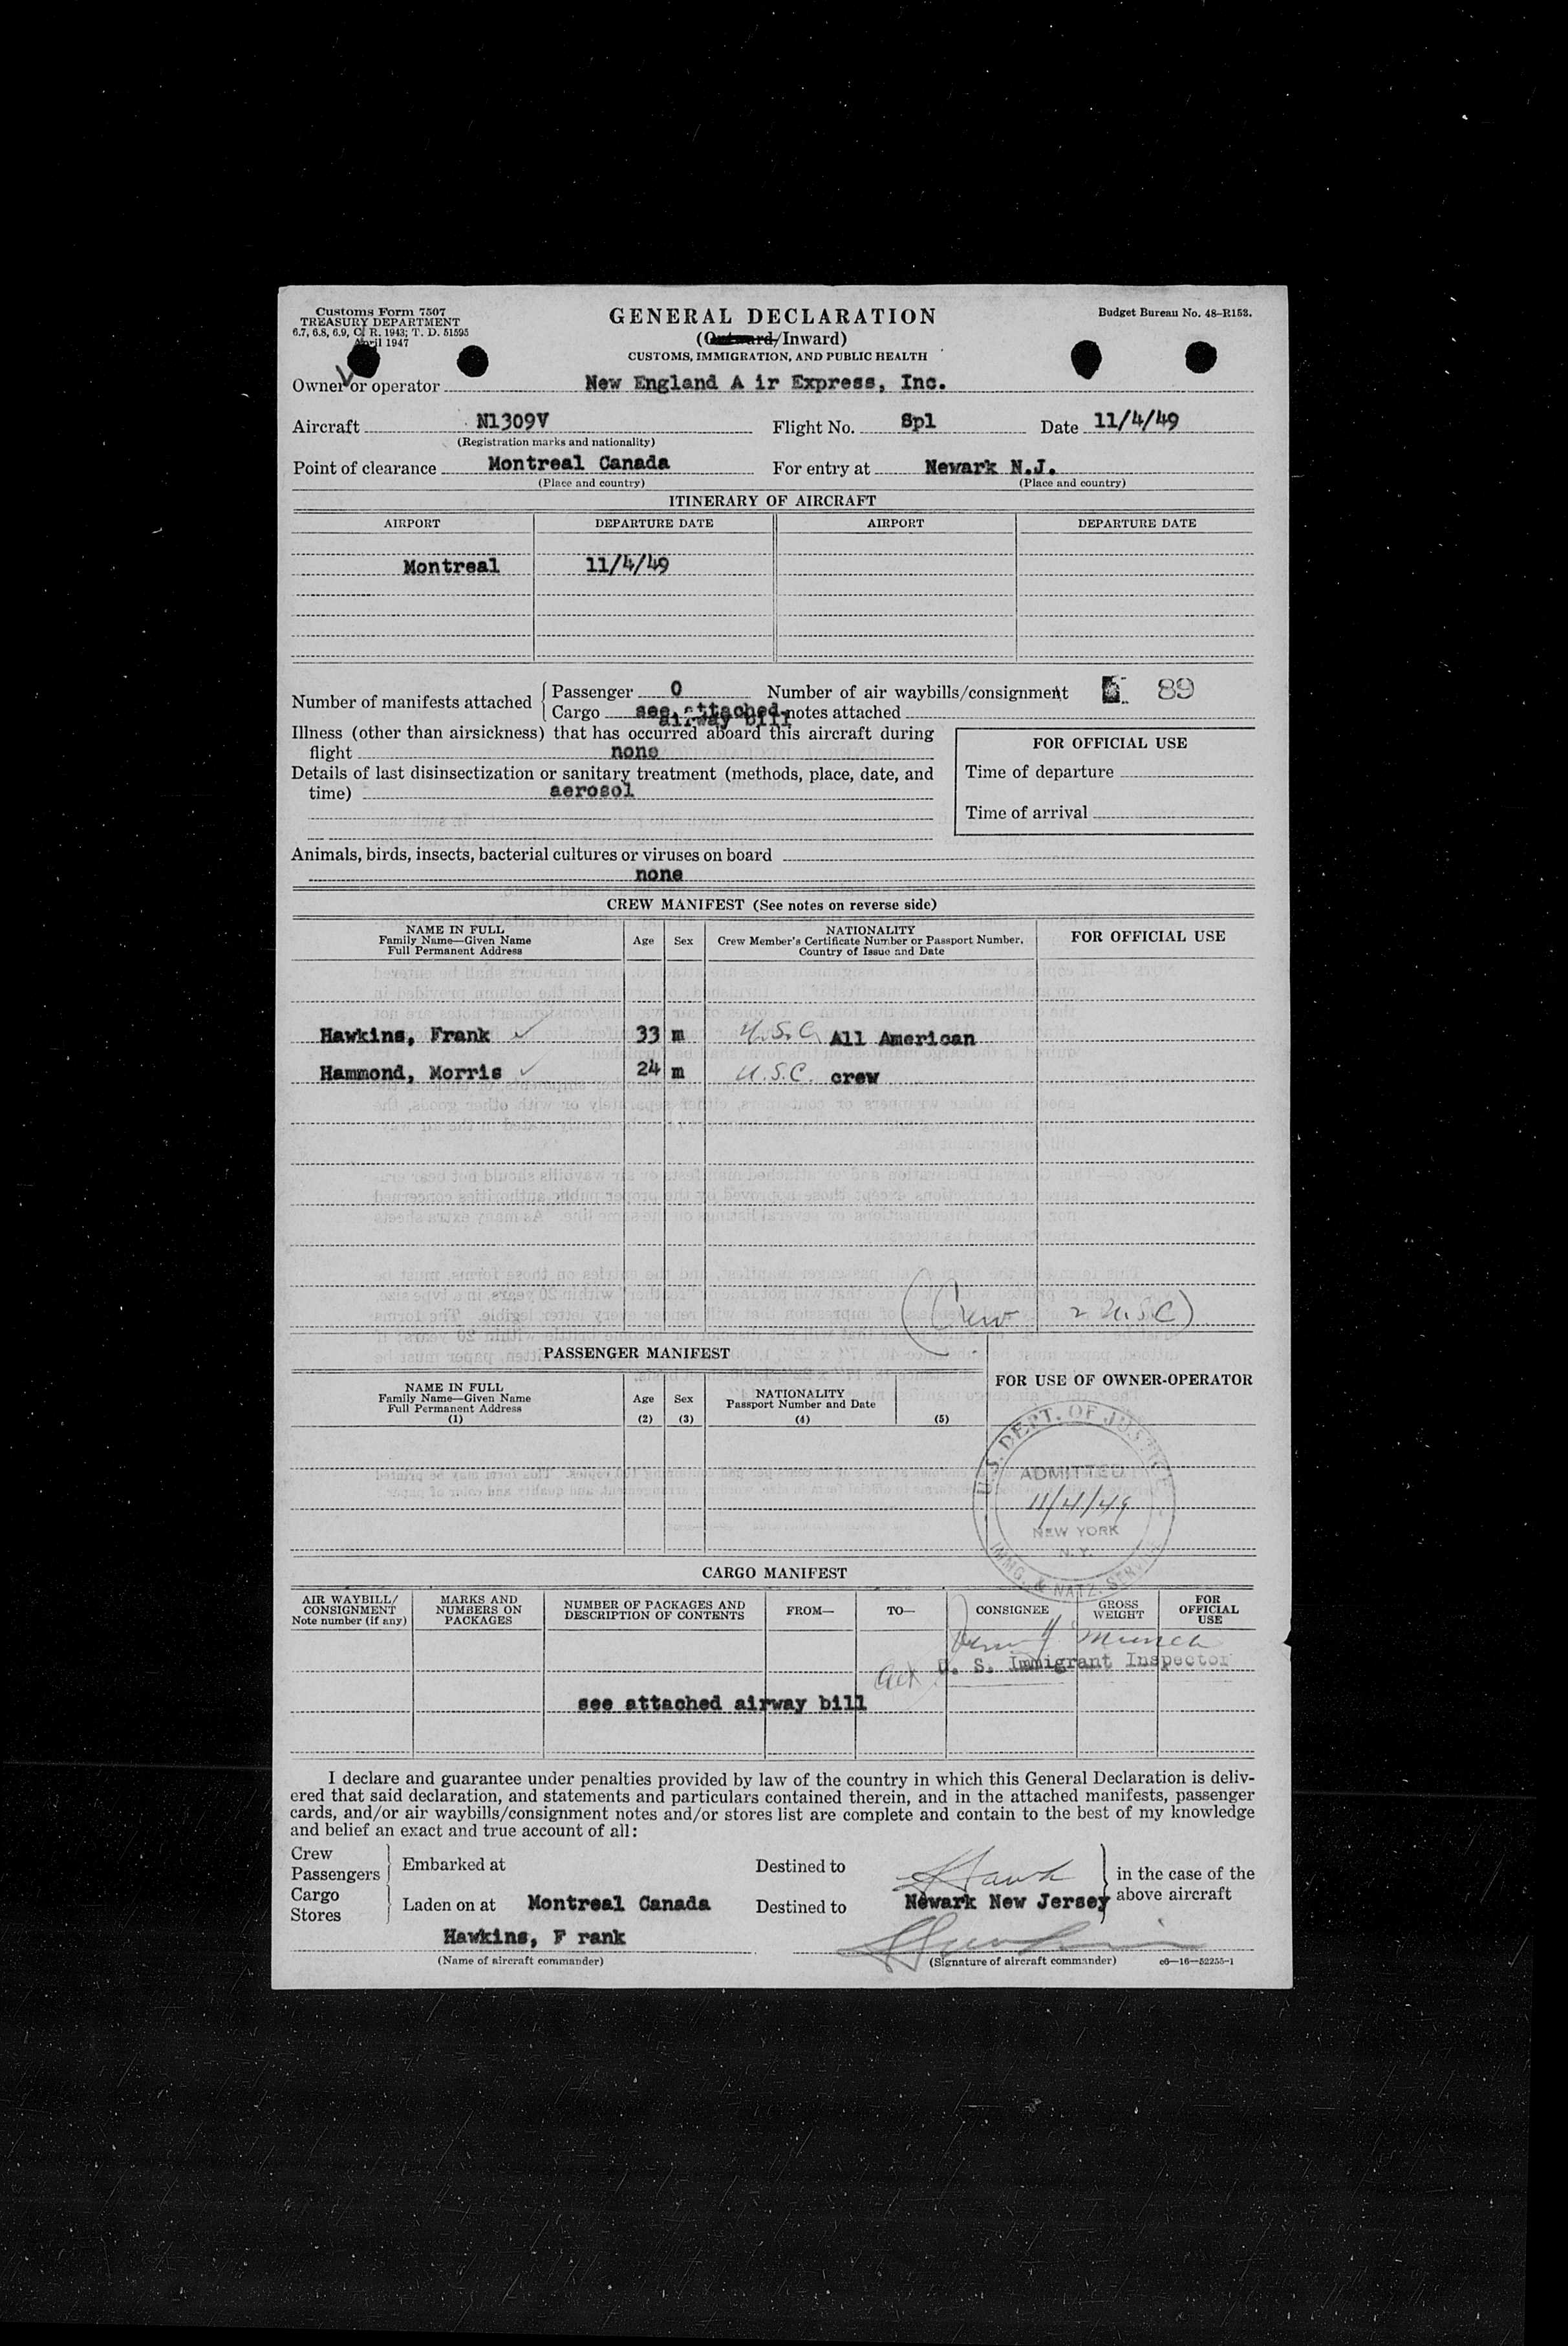 Customs Form 7507
TREASURY DEPARTMENT
6.7, 6.8, 6.9, C. R. 1943; T. D. 51595
April 1947
GENERAL DECLARATION
(Outward/Inward)
CUSTOMS, IMMIGRATION, AND PUBLIC HEALTH
Budget Bureau No. 48-R153.
Owner or operator New England A ir Express, Inc.
Aircraft N1309V Flight No. Spl Date 11/4/49
(Registration marks and nationality)
Point of clearance Montreal Canada For entry at Newark N.J.
(Place and country) (Place and country)
ITINERARY OF AIRCRAFT
AIRPORT DEPARTURE DATE AIRPORT DEPARTURE DATE
Montreal 11/4/49
Number of manifests attached { Passenger 0 Number of air waybills/consignment 89
Cargo see attached notes attached
airway bill
Illness (other than airsickness) that has occurred aboard this aircraft during
flight none
Details of last disinsectization or sanitary treatment (methods, place, date, and
time) aerosol
FOR OFFICIAL USE
Time of departure
Time of arrival
Animals, birds, insects, bacterial cultures or viruses on board
none
CREW MANIFEST (See notes on reverse side)
NAME IN FULL
Family Name—Given Name
Full Permanent Address
Age Sex
NATIONALITY
Crew Member's Certificate Number or Passport Number,
Country of Issue and Date
FOR OFFICIAL USE
Hawkins, Frank ✓ 33 m U.S.C. All American
Hammond, Morris ✓ 24 m U.S.C. crew
(Crew 2 U.S.C)
PASSENGER MANIFEST
FOR USE OF OWNER-OPERATOR
NAME IN FULL
Family Name—Given Name
Full Permanent Address
(1)
Age
(2)
Sex
(3)
NATIONALITY
Passport Number and Date
(4) (5)
U.S. DEPT. OF JUSTICE
ADMITTED
11/4/49
NEW YORK
N. Y.
IMMG. & NATZ. SERVICE
CARGO MANIFEST
AIR WAYBILL/
CONSIGNMENT
Note number (if any)
MARKS AND
NUMBERS ON
PACKAGES
NUMBER OF PACKAGES AND
DESCRIPTION OF CONTENTS
FROM— TO— CONSIGNEE
GROSS
WEIGHT
FOR
OFFICIAL
USE
Act U. S. Immigrant Inspector
see attached airway bill
I declare and guarantee under penalties provided by law of the country in which this General Declaration is deliv-
ered that said declaration, and statements and particulars contained therein, and in the attached manifests, passenger
cards, and/or air waybills/consignment notes and/or stores list are complete and contain to the best of my knowledge
and belief an exact and true account of all:
Crew
Passengers } Embarked at Destined to
Cargo
Stores } Laden on at Montreal Canada Destined to Newark New Jersey
} in the case of the
above aircraft
Hawkins, F rank
(Name of aircraft commander) (Signature of aircraft commander) c6—16—52255-1